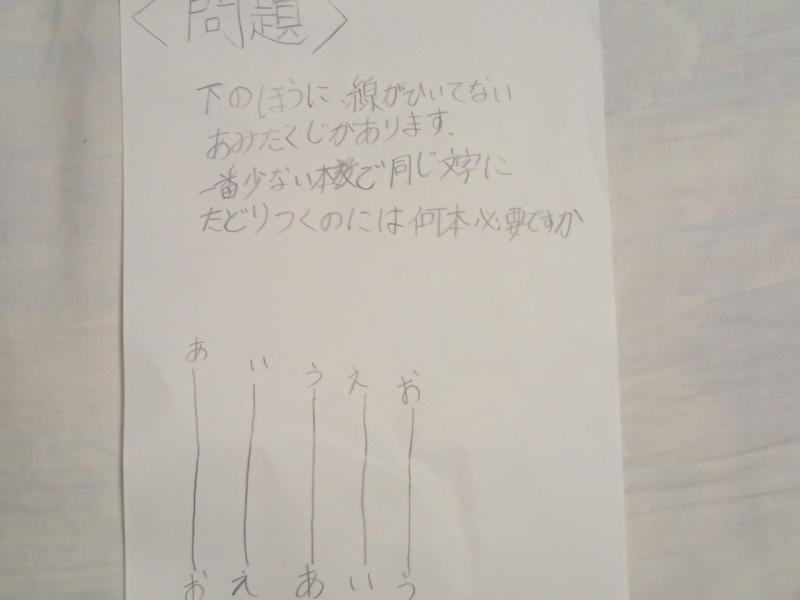 〈問題〉
下のほうに、線がひいてない
あみだくじがあります。
一番少ない本数で同じ文字に
たどりつくのには何本必要ですか
あ い う え お
お え あ い う